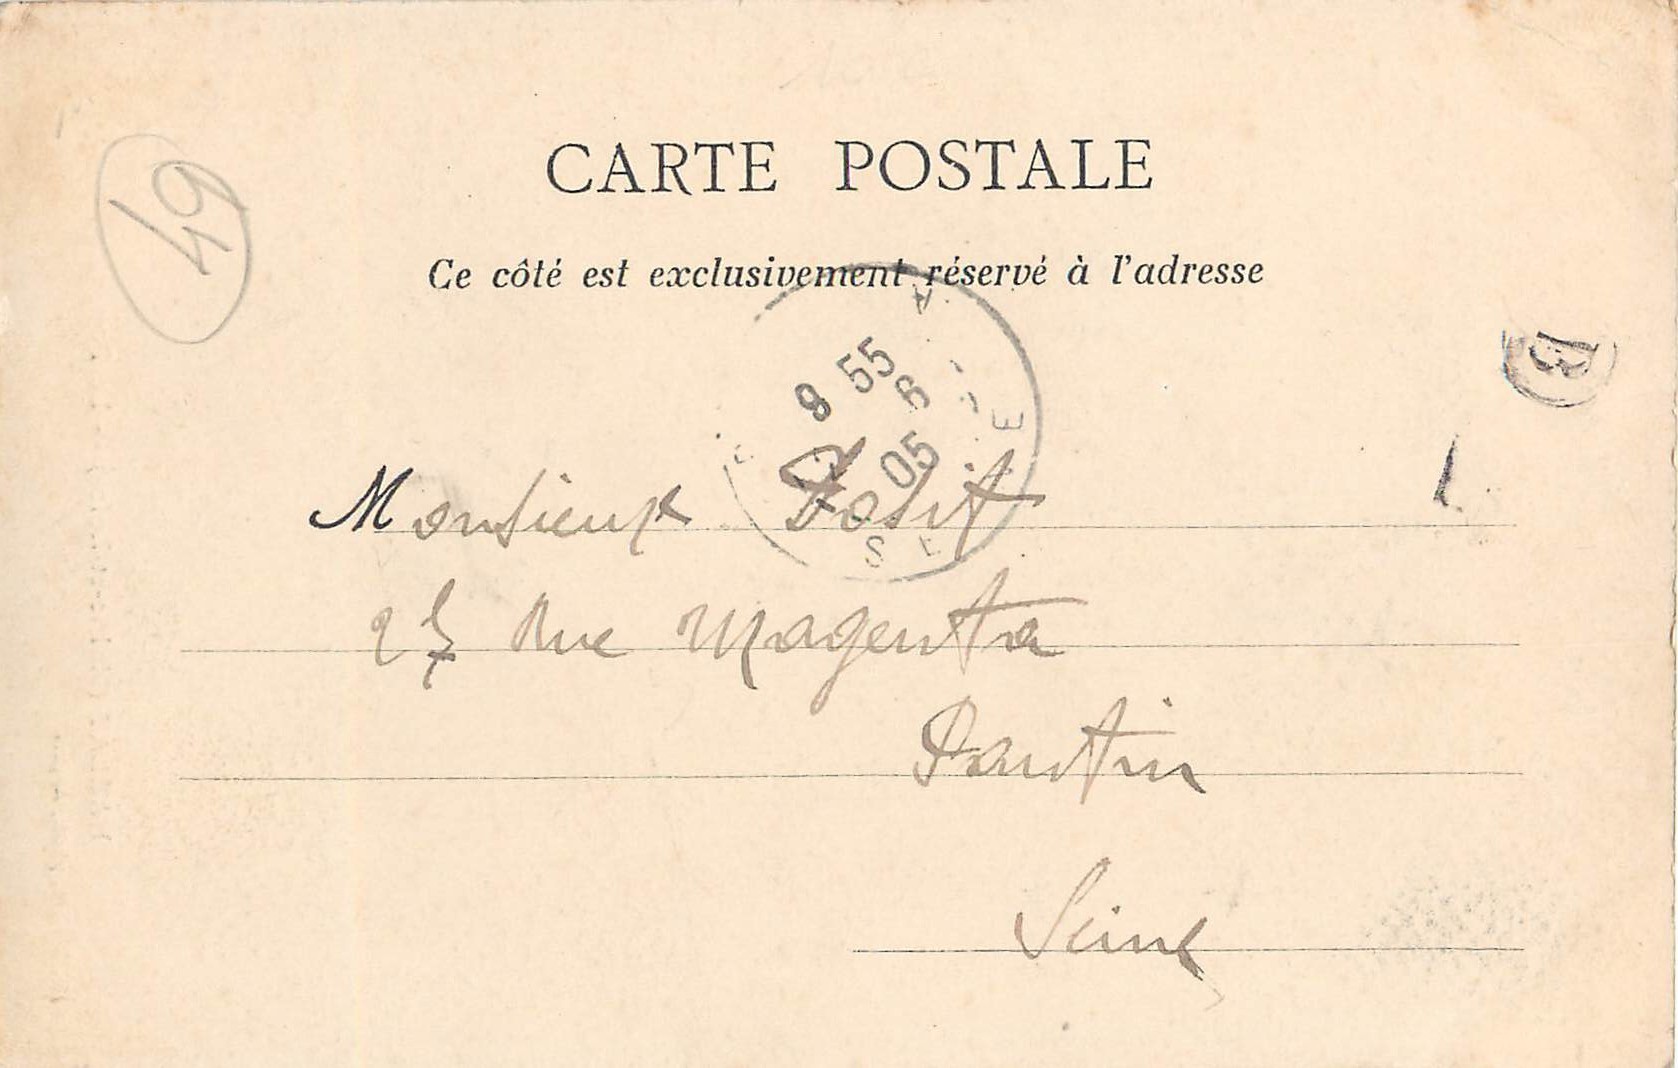 CARTE POSTALE
Ce côté est exclusivement réservé à l'adresse
49
B
8 55
6
05
Monsieur
27 Rue Magenta
Pantin
Seine